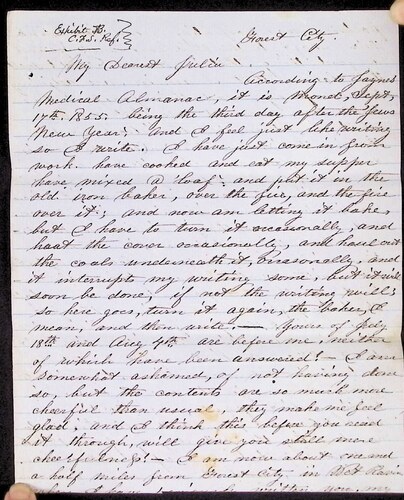 Exhibit B.
C.F.S. Ref.
Forest City.
My Dearest Julia
According to Jaynes
Medical Almanac, it is Monda, Sept,
17th 1855. being the third day after the Jews
New Year; and I feel just like writing
so I write. I have just come in from
work. have cooked and eat my supper
have mixed a 'loaf', and put it in the
old iron baker, over the fire, and the fire
over it; and now am letting it bake,
but I have to turn it occasionally, and
heat the cover occasionally, and haul out
the coals underneath it, occasionally, and
it interrupts my writing some, but it will
soon be done, if not the writing will;
so here goes, turn it again, the baker, I
mean, and then write — Yours of July
18th and Aug 4th are before me, neither
of which have been answered! — I am
somewhat ashamed, of not having done
so, but the contents are so much more
cheerful than usual they make me feel
glad. and I think this before you read
it through, will give you still more
cheerfulness! — I am now about one and
a half miles from Forest City, in